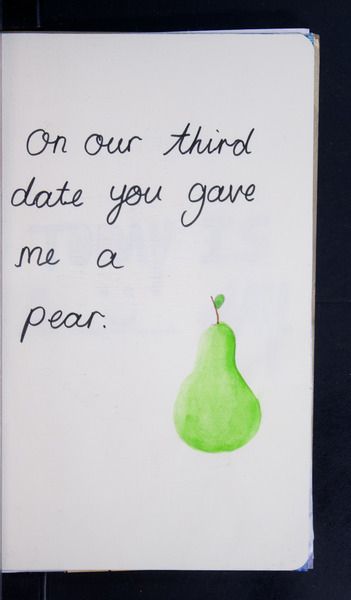 On our third
date you gave
me a
pear.